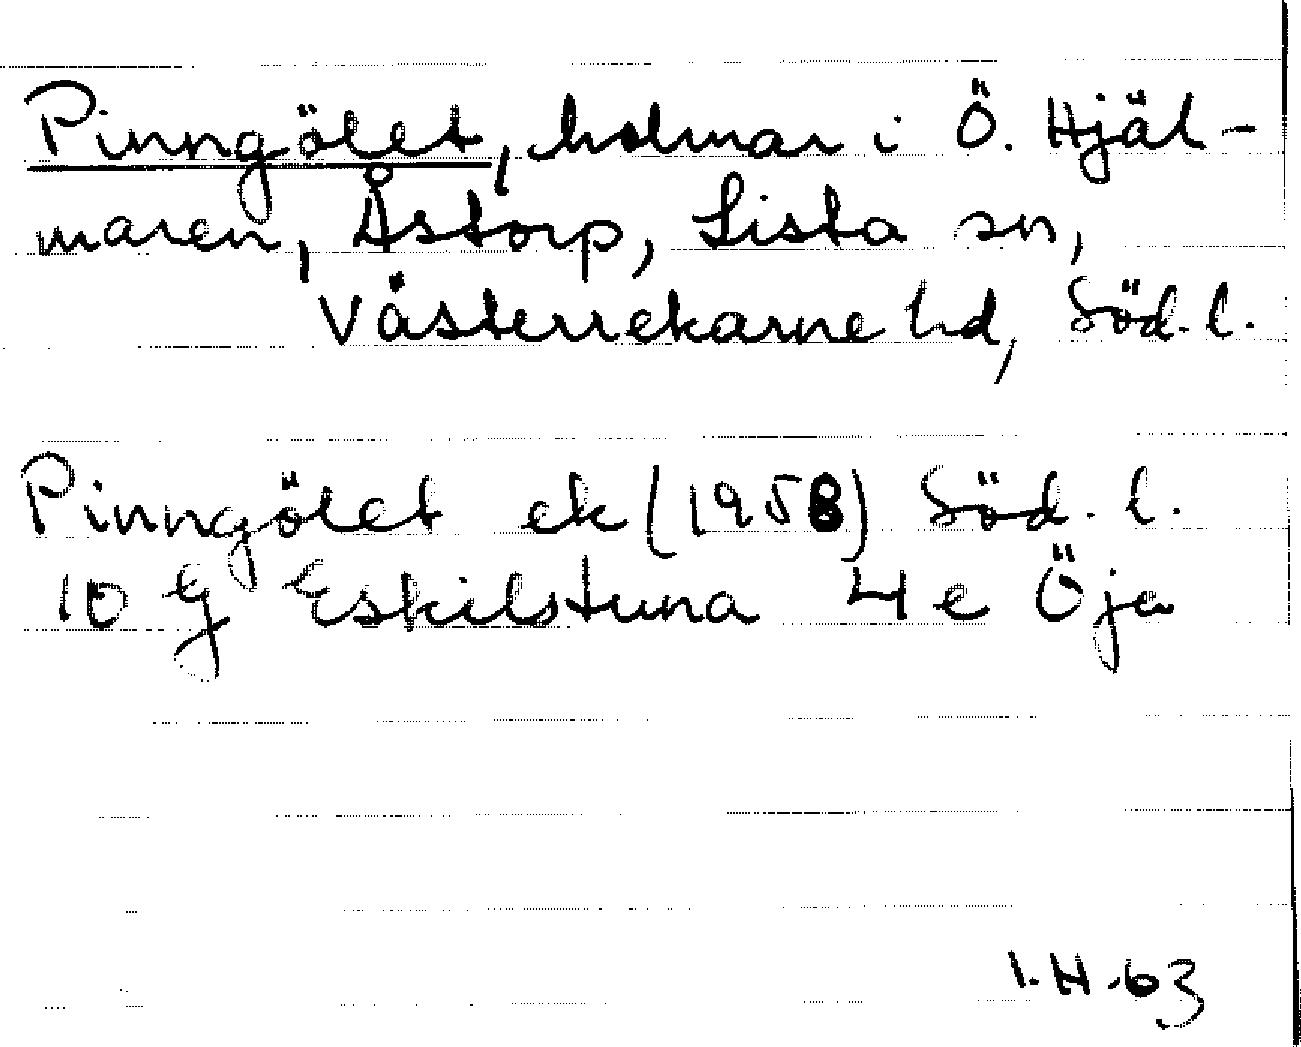 Pinngölet, holmar i Ö. Hjäl-
maren, Åstorp, Lista sn,
Västerrekarne hd, Söd. l.
Pinngölet ek (1958) Söd. l.
10 g Eskilstuna 4 e Öja
I.H.63